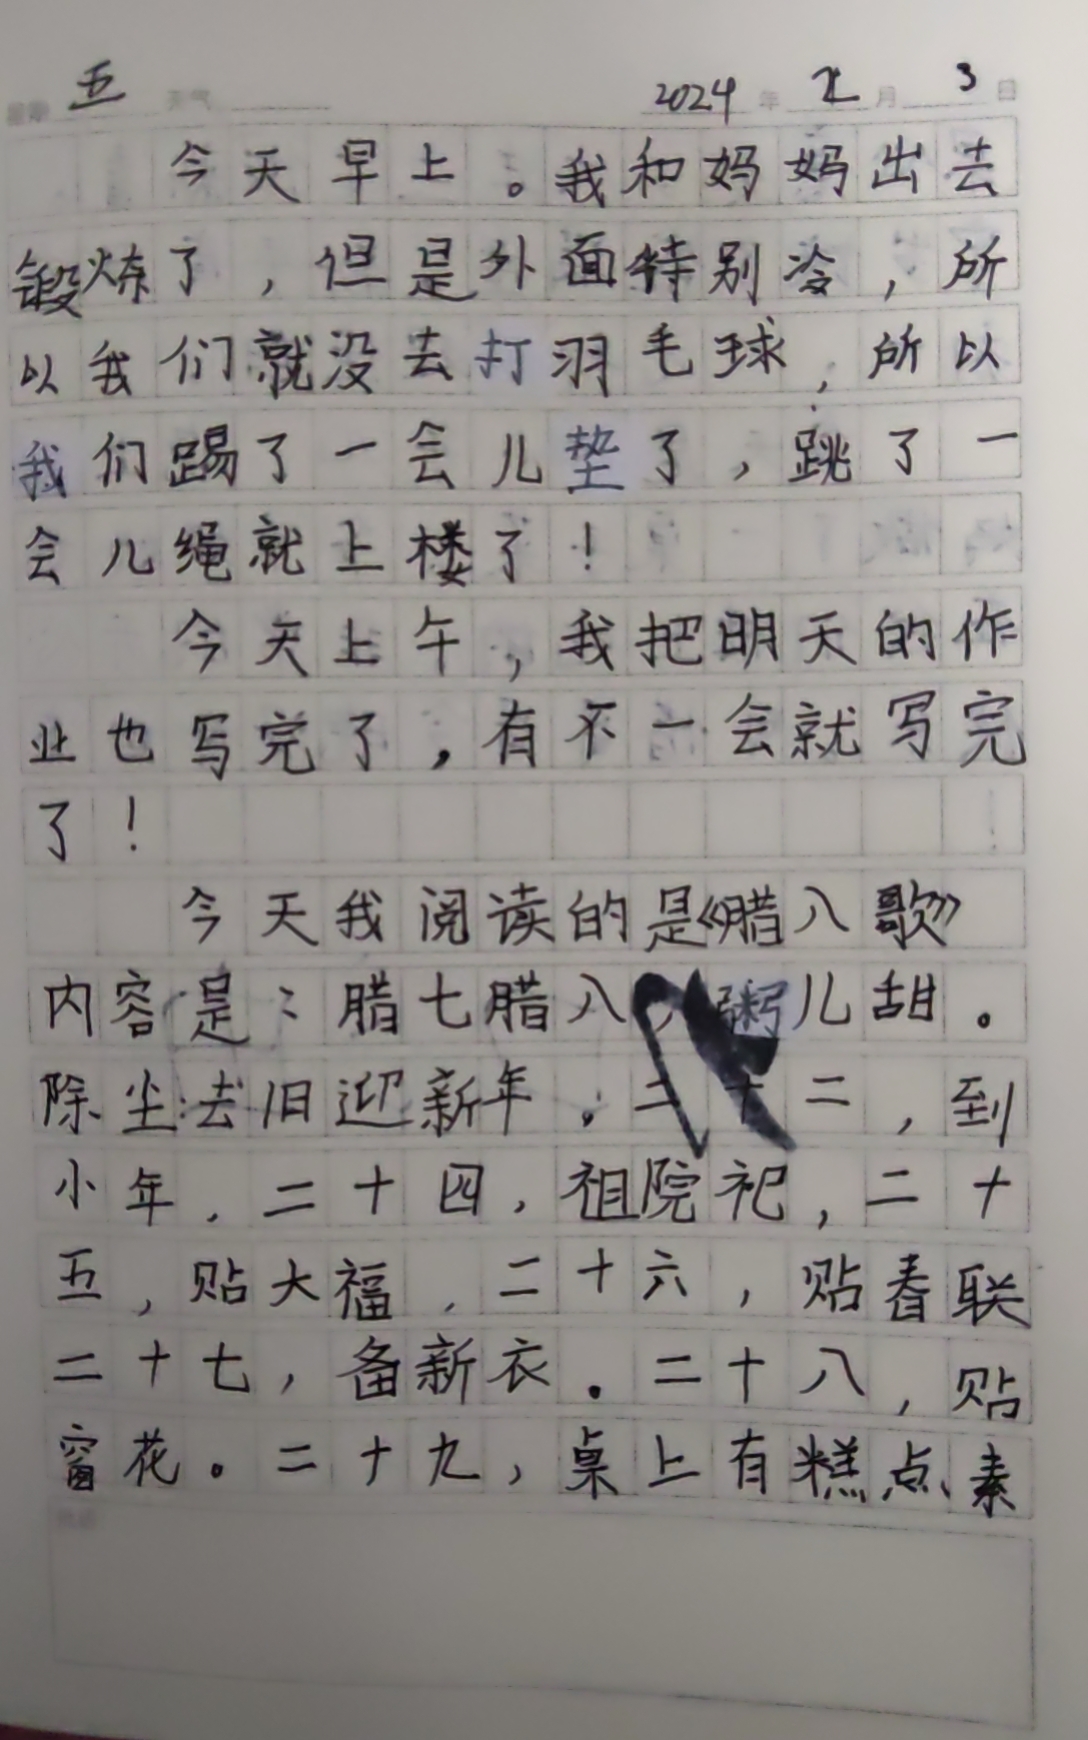 星期 五 天气 2024 年 月 3 日
今天早上。我和妈妈出去
锻炼了，但是外面特别冷，所
以我们就没去打羽毛球，所以
我们踢了一会儿垫了，跳了一
会儿绳就上楼了！
今天上午，我把明天的作
业也写完了，有不一会就写完
了！
今天我阅读的是《腊八歌》
内容是：腊七腊八，粥儿甜。
除尘去旧迎新年。二十二，到
小年，二十四，祖院祀，二十
五，贴大福，二十六，贴春联
二十七，备新衣。二十八，贴
窗花。二十九，桌上有糕点素